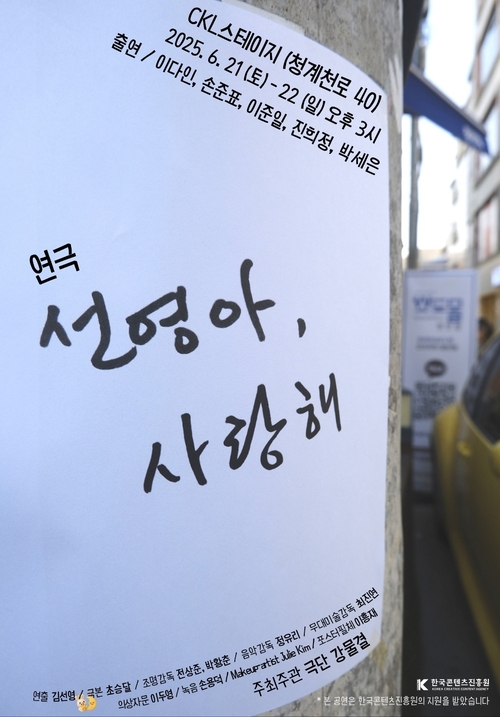 CKL스테이지 (청계천로 40)
2025. 6. 21 (토) - 22 (일) 오후 3시
출연 / 이다인, 손준표, 이준일, 진희정, 박세은
연극
선영아,
사랑해
연출 김선영 / 극본 초승달 / 조명감독 전상준, 박황춘 / 음악감독 정유리 / 무대미술감독 최진연
의상자문 이두영 / 녹음 손용덕 / Makeup artist Julie Kim / 포스터필체 이홍재
주최주관 극단 강물결
한국콘텐츠진흥원
KOREA CREATIVE CONTENT AGENCY
* 본 공연은 한국콘텐츠진흥원의 지원을 받았습니다